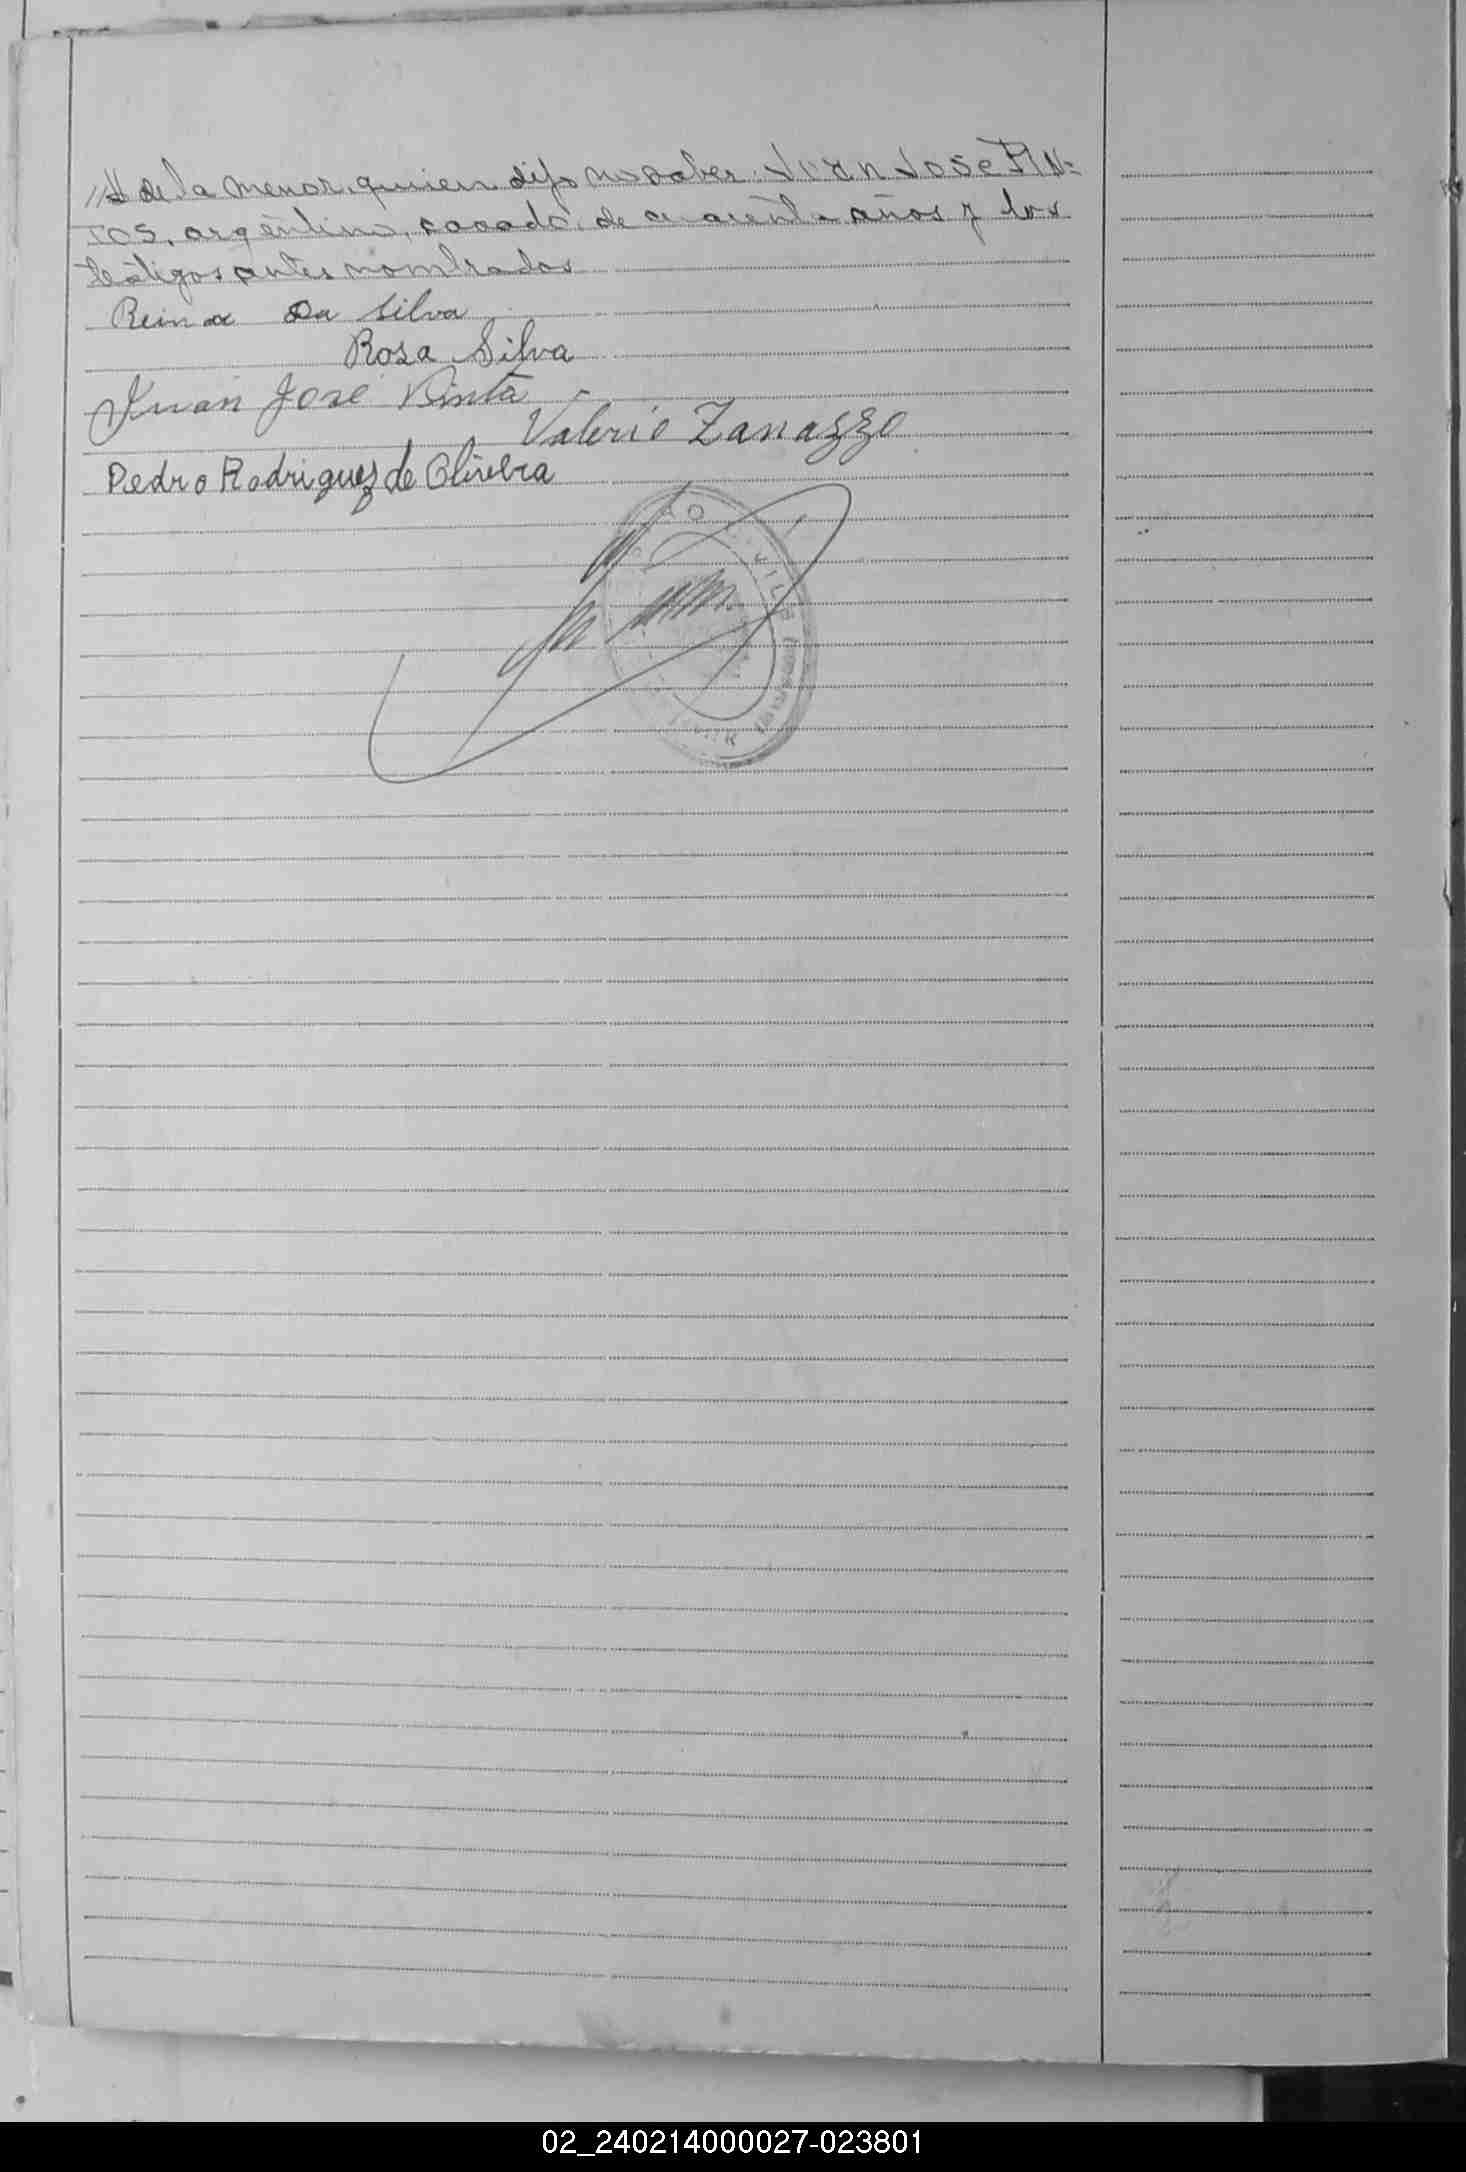 de la menor, quien dijo no saber. Juan Jose PIN=
TOS, argentino, casado, de cuarenta años y los
testigos antes nombrados
Reina Da Silva
Rosa Silva
Juan José Pinto
Valerio Zanazzo
Pedro Rodriguez de Oliveira
02_240214000027-023801